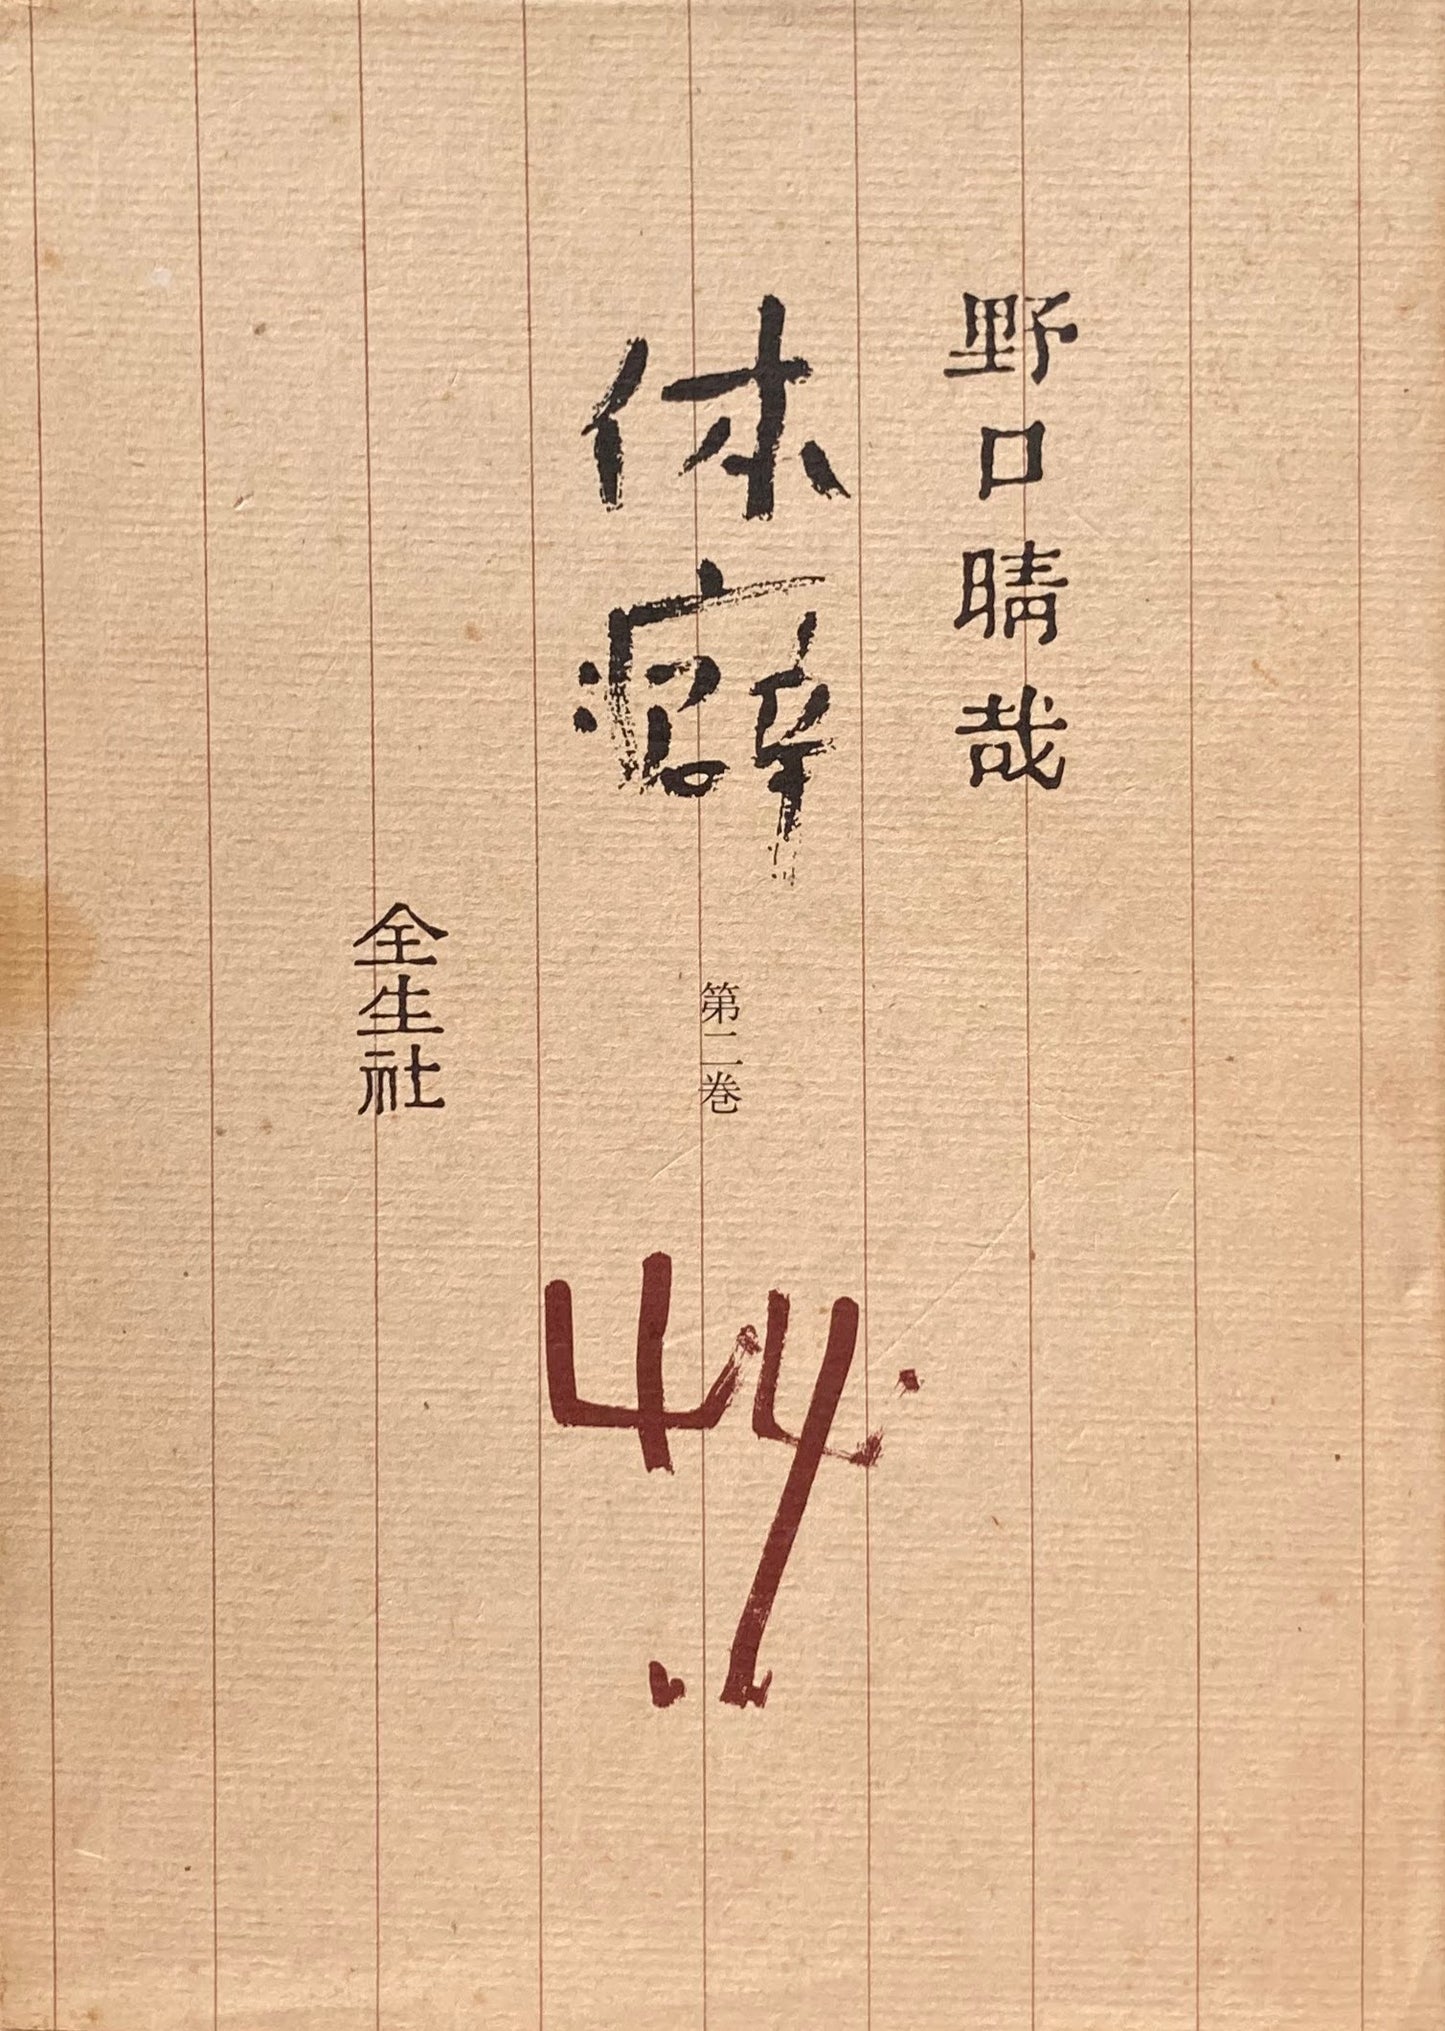 野口晴哉
体癖
第二巻
全生社